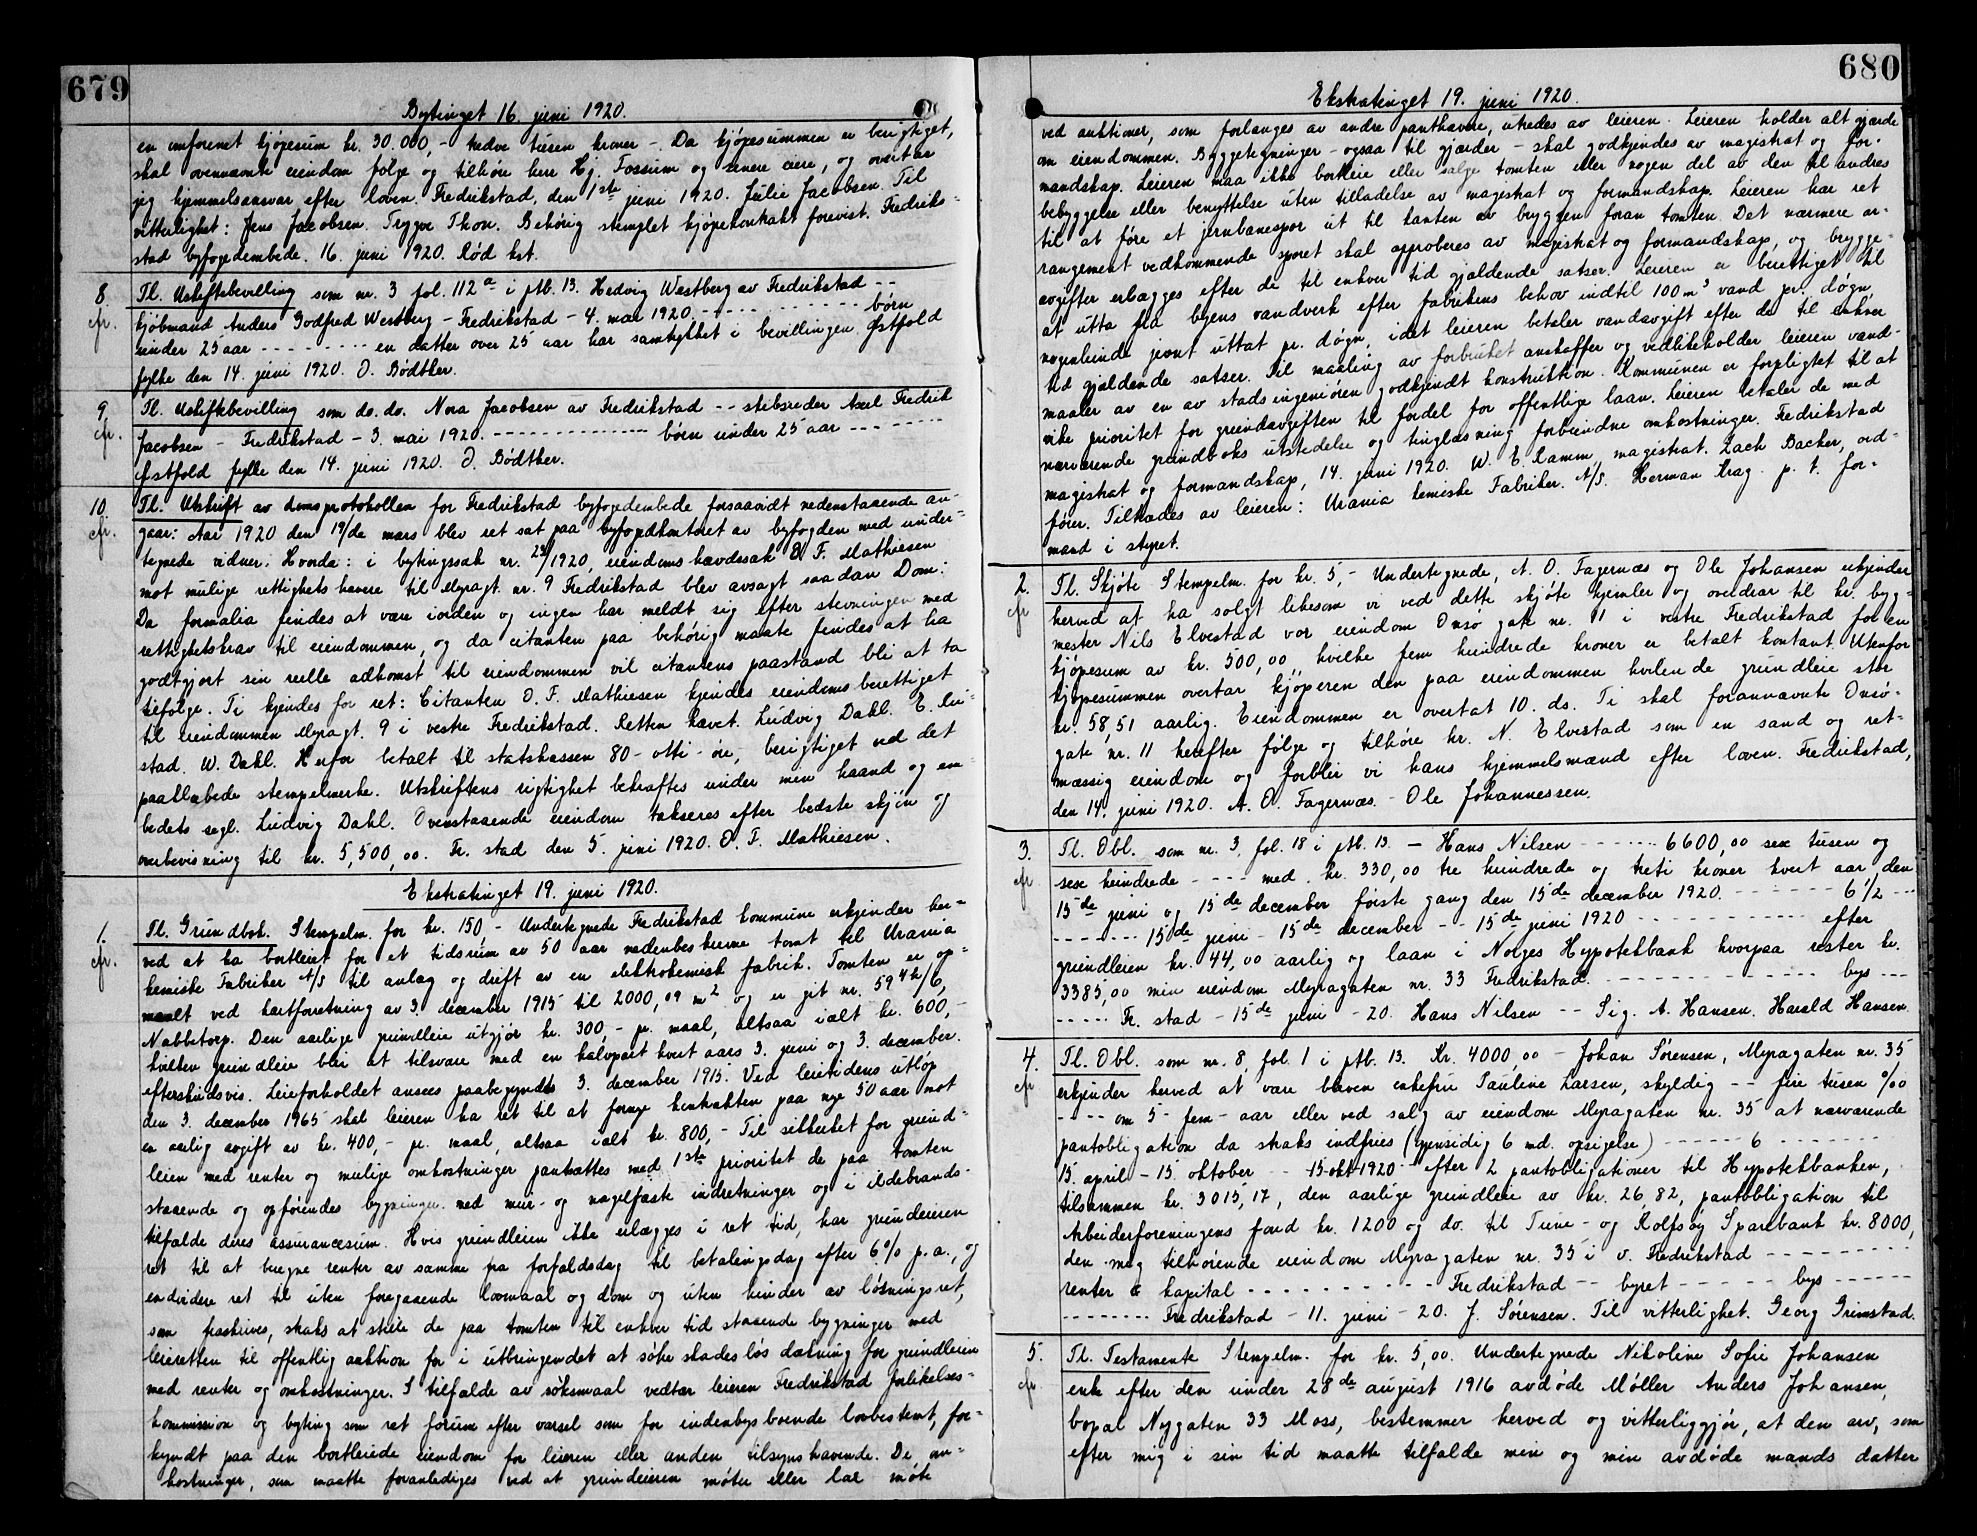 679
Bytinget 16. juni 1920.
en omforenet kjøpesum kr. 30.000,- tredve tusen kroner -. Da kjøpesummen er berigtiget,
skal ovennævnte eiendom følge og tilhøre herr Hj. Fossum og senere eiere, og overtar
jeg hjemmelsansvar efter loven. Fredrikstad, den 1ste juni 1920. Julie Jacobsen. Til
vitterlighet: Jens Jacobsen. Trygve Thon. Behørig stemplet kjøpekontrakt forevist. Fredrik-
stad byfogedembede, 16. juni 1920. Rød kst.
8. Tl. Uskiftebevilling som nr. 3 fol. 112a i ptb. 13. Hedvig Westberg av Fredrikstad --
cfr. kjøbmand Anders Godfred Westberg - Fredrikstad - 4. mai 1920. - - - - - - - børn
under 25 aar - - - - - - - en datter over 25 aar har samtykket i bevillingen. Østfold
fylke den 14. juni 1920. O. Bødtker.
9. Tl. Uskiftebevilling som do. do. Nora Jacobsen av Fredrikstad -- skibsreder Axel Fredrik
cfr. Jacobsen - Fredrikstad - 3. mai 1920. - - - - - - - børn under 25 aar - - - - - -
Østfold fylke den 14. juni 1920. O. Bødtker.
10. Tl. Utskrift av domsprotokollen for Fredrikstad byfogedembede forsaavidt nedenstaaende an-
cfr. gaar: Aar 1920 den 19/de mars blev ret sat paa byfogedkontoret av byfogden med under-
tegnede vidner: Hvorda: i bytingssak nr. 23/1920, eiendomshævdssak O. F. Mathiesen
mot mulige rettighetshavere til Myragt. nr. 9 Fredrikstad blev avsagt saadan Dom:
Da formalia findes at være iorden og ingen har meldt sig efter stevningen med
rettighetskrav til eiendommen, og da citanten paa behørig maate findes at ha
godtgjort sin reelle adkomst til eiendommen vil citantens paastand bli at ta
tilfølge. Ti kjendes for ret: Citanten O. F. Mathiesen kjendes eiendomsberettiget
til eiendommen Myragt. 9 i vestre Fredrikstad. Retten hævet. Ludvig Dahl. E. Lu-
stad. W. Dahl. Herfor betalt til statskassen 80 - otti - øre, berigtiget ved det
paaklæbede stempelmerke. Utskriftens rigtighet bekræftes under min haand og em-
bedets segl. Ludvig Dahl. Ovenstaaende eiendom takseres efter bedste skjøn og
overbevisning til kr. 5,500,00. Fr. stad den 5. juni 1920. O. F. Mathiesen.
Ekstratinget 19. juni 1920.
1. Tl. Grundbok. Stempelm. for kr. 150 - Undertegnede Fredrikstad kommune erkjender her-
cfr. ved at ha bortleiet for et tidsrum av 50 aar nedenbeskrevne tomt til Urania
kemiske Fabriker A/S til anlæg og drift av en elektrokemisk fabrik. Tomten er op-
maalt ved kartforretning av 3. december 1915 til 2000,09 m2 og er git nr. 5942/6,
Nabbetorp. Den aarlige grundleie utgjør kr. 300,- pr. maal, altsaa ialt kr. 600,-
hvilken grundleie blir at tilsvare med en halvpart hvert aars 3. juni og 3. december
efterskudsvis. Leieforholdet ansees paabegyndt 3. december 1915. Ved leietidens utløp
den 3. december 1965 skal leieren ha ret til at fornye kontrakten paa nye 50 aar mot
en aarlig avgift av kr. 400,- pr. maal, altsaa ialt kr. 800,- Til sikkerhet for grund-
leien med renter og mulige omkostninger pantsættes med 1ste prioritet de paa tomten
staaende og opførendes bygninger med mur- og nagelfaste indretninger og i ildebrands-
tilfælde deres assurancesum. Hvis grundleien ikke erlægges i ret tid, har grundeieren
ret til at beregne renter av samme fra forfaldsdag til betalingsdag efter 6% p.a., og
endvidere ret til uten foregaaende lovmaal og dom og uten hinder av løsningsret,
som fraskrives, straks at stille de paa tomten til enhver tid staaende bygninger med
leieretten til offentlig auktion for i utbringendet at søke skadesløs dækning for grundleien
med renter og omkostninger. I tilfælde av søksmaal vedtar leieren Fredrikstad forlikelses-
kommission og byting som ret forum efter varsel som for indenbysboende lovbestemt, for-
kyndt paa den bortleiede eiendom for leieren eller anden tilsynshavende. De om-
kostninger, som maatte foranlediges ved at grundeieren møter eller lar møte
680
Ekstratinget 19. juni 1920.
ved auktioner, som forlanges av andre panthavere, utredes av leieren. Leieren holder alt gjærde
om eiendommen. Byggetegninger - ogsaa til gjærder - skal godkjendes av magistrat og for-
mandskap. Leieren maa ikke bortleie eller sælge tomten eller nogen del av den til andres
bebyggelse eller benyttelse uten tilladelse av magistrat og formandskap. Leieren har ret
til at føre et jernbanespor ut til kanten av bryggen foran tomten. Det nærmere ar-
rangement vedkommende sporet skal approberes av magistrat og formandskap, og brygge-
avgifter erlægges efter de til enhver tid gjældende satser. Leieren er berettiget til
at utta fra byens vandverk efter fabrikens behov indtil 100 m3 vand pr. døgn,
nogenlunde jevnt uttat pr. døgn, idet leieren betaler vandavgift efter de til enhver
tid gjældende satser. Til maaling av forbruket anskaffer og vedlikeholder leieren vand-
maaler av en av stadsingeniøren godkjendt konstruktion. Kommunen er forpligtet til at
vike prioritet for grundavgiften til fordel for offentlige laan. Leieren betaler de med
nærværende grundboks utstedelse og tinglæsning forbundne omkostninger. Fredrikstad
magistrat og formandskap, 14. juni 1920. W. E. Ramm, magistrat. Zach Backer, ord-
fører. Tiltrædes av leieren: Urania kemiske Fabriker. A/S. Herman Krag p. t. for-
mand i styret.
2. Tl. Skjøte Stempelm. for kr. 5,- Undertegnede, A. O. Fagernæs og Ole Johansen erkjender
cfr herved at ha solgt likesom vi ved dette skjøte hjemler og overdrar til hr. byg-
mester Nils Elvestad vor eiendom Onsø gate nr. 11 i vestre Fredrikstad for en
kjøpesum av kr. 500,00, hvilke fem hundrede kroner er betalt kontant. Utenfor
kjøpesummen overtar kjøperen den paa eiendommen hvilende grundleie stor
kr. 58,51 aarlig. Eiendommen er overtat 10. ds. Ti skal forannævnte Onsø-
gate nr. 11 herefter følge og tilhøre hr. N. Elvestad som en sand og ret-
mæssig eiendom og forblir vi hans hjemmelsmænd efter loven. Fredrikstad,
den 14. juni 1920. A. O. Fagernæs - Ole Johannessen.
3. Tl. Obl. som nr. 3, fol. 18 i ptb. 13. - Hans Nilsen - - - - - - 6600,00 sex tusen og
cfr sexe hundrede - - - - med kr. 330,00 tre hundrede og treti kroner hvert aar den
15de juni og 15de december første gang den 15de december 1920. - - - - - - 6 1/2 - - -
- - - - - - 15de juni - 15de december - - 15de juni 1920 - - - - - - - - - - - efter
grundleien kr. 44,00 aarlig og laan i Norges Hypotekbank hvorpaa rester kr.
3385,00 min eiendom Myragaten nr. 33 Fredrikstad. - - - - - - - - - - - - bys - - -
- - - - - Fr. stad - 15de juni - 20. Hans Nilsen -- Sig. A. Hansen. Harald Hansen.
4. Tl. Obl. som nr. 8, fol. 1 i ptb. 13. Kr. 4000,00 - Johan Sørensen, Myragaten nr. 35
cfr erkjender herved at være bleven enkefru Pauline Larsen, skyldig -- fire tusen 0/00
- - - - om 5 - fem - aar eller ved salg av eiendom Myragaten nr. 35 at nærværende
pantobligation da straks indfries (gjensidig 6 md. opsigelse) - - - - - - 6 - - - - - - - -
15. april - 15. oktober - - 15-okt-1920 - efter 2 pantobligationer til Hypotekbanken,
tilsammen kr. 3015,17, den aarlige grundleie av kr. 26 82, pantobligation til
Arbeiderforeningens fond kr. 1200 og do. til Tune- og Rolfsøy Sparebank kr. 8000,
den mig tilhørende eiendom Myragaten nr. 35 i v. Fredrikstad - - - - - - - - - -
renter & kapital - - - - - - - - - - Fredrikstad -- byret - - - - - - bys - - - - - -
- - - - - - - - Fredrikstad - 11. juni - 20. J. Sørensen. Til vitterlighet. Georg Grimstad.
5. Tl. Testamente Stempelm. for kr. 5,00. Undertegnede Nikoline Sofie Johansen
cfr enke efter den under 28de august 1916 avdøde Møller Anders Johansen,
bopæl Nygaten 33 Moss, bestemmer herved og vitterliggjør, at den arv, som
efter mig i sin tid maatte tilfalde min og min avdøde mands datter